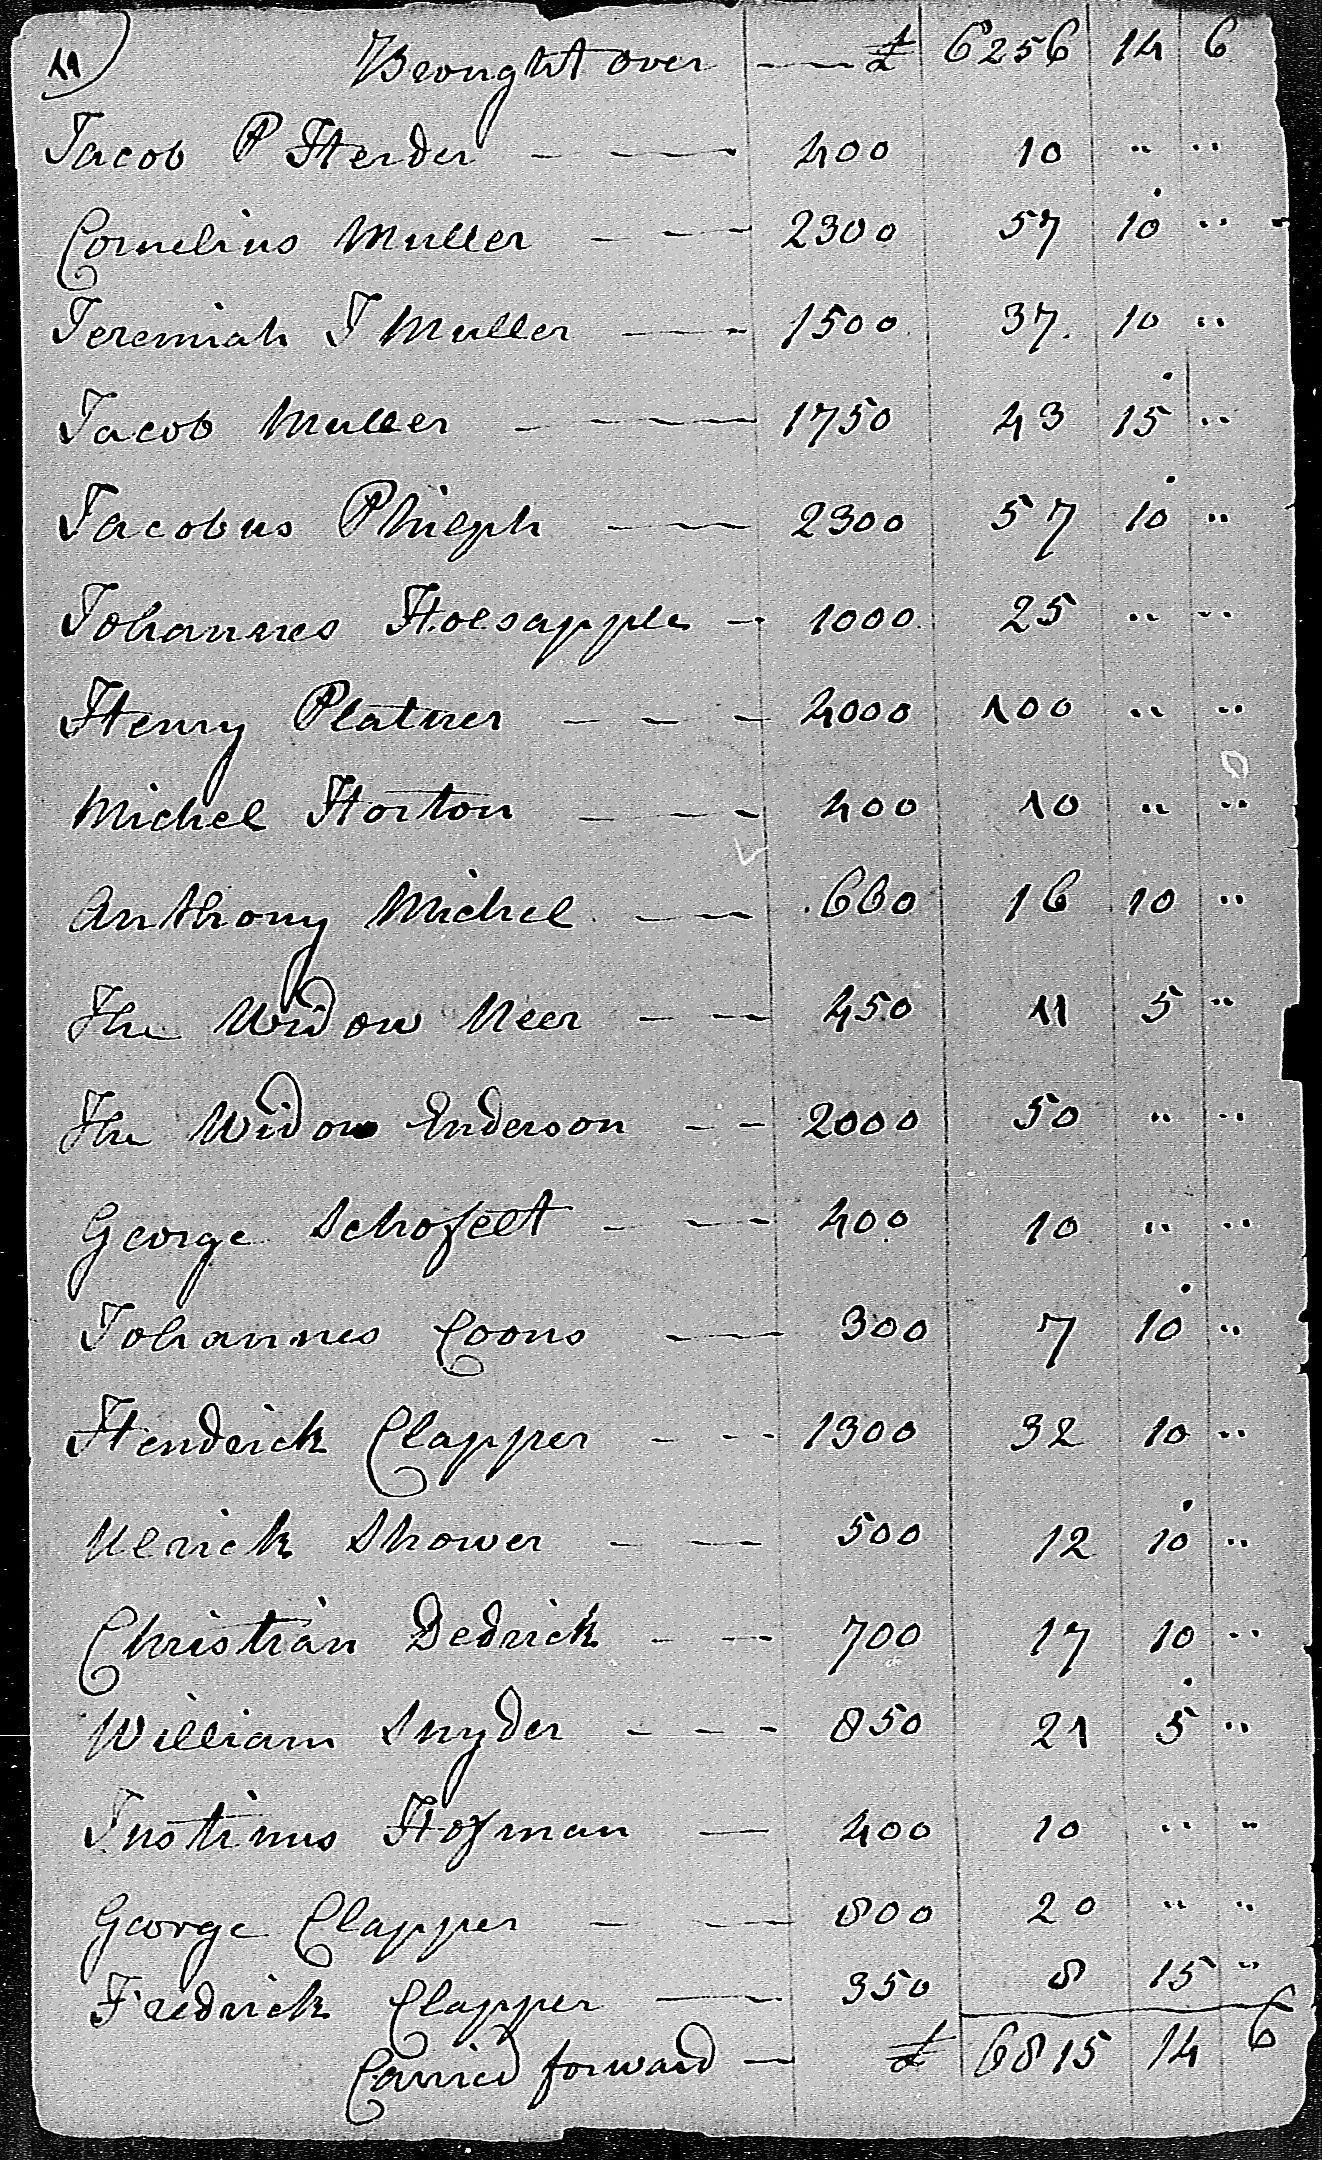 11
Brought over £ 6256 14 6
Jacob P Herder 400 10 " "
Cornelius Muller 2300 57 10 "
Jeremiah J Muller 1500 37. 10 "
Jacob Muller 1750 43 15 "
Jacobus Philiph 2300 57 10 "
Johannes Holsapple 1000 25 " "
Henry Platner 4000 100 " "
Michel Horton 400 10 " "
Anthony Michel 660 16 10 "
The Widow Neer 450 11 5 "
The Widow Enderson 2000 50 " "
George Schofelt 400 10 " "
Johannes Coons 300 7 10 "
Hendrick Clapper 1300 32 10 "
Ulrick Shower 500 12 10 "
Christian Dedrick 700 17 10 "
William Snyder 850 21 5 "
Justinus Hofman 400 10 " "
George Clapper 800 20 " "
Fredrick Clapper 350 8 15 "
Carried forward £ 6815 14 6